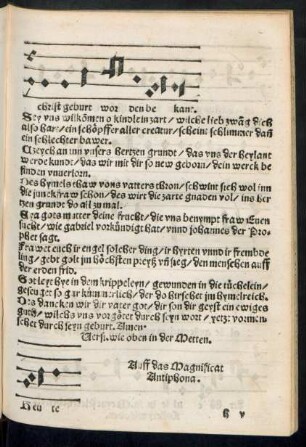 christ geburt wor den be kant.
Sey vns wilkōmen o kindlein zart / wilche lieb zwāg dich
also hart / ein schöpffer aller creatur / scheint schlimmer dañ
ein schlechter bawer.
Czeych an inn vnsers hertzen grundt / das vns der heylant
werde kundt / das wir mit dir so new geborn / dein werck be
finden vnuerlorn.
Des hymels thaw vons vatters thron / schwing sich wol inn
die junckfraw schon / des wirt die zarte gnaden vol / ins her
tzen grundt do all zu mal.
Sya gots mutter deine frucht / die vns benympt fraw Euen
sucht / wie gabriel vorkündigt hat / vnnd johannes der Pro
phet sagt.
Frawet euch ir engel solcher ding / ir hyrten vnnd ir frembde
ling / gebt got im höchsten preyß vñ sieg / den menschen auff
der erden frid.
Got leyt hye in dem krippeleyn / gewunden in die tüchelein /
geseuget so gar kümmerlich / der do hirschet im hymelreich.
Des dancken wir dir vater gar / dir son dir geyst ein ewiges
gut / wilchs vns vorgötet durch seyn wort / yetzt vormen-
schet durch seyn geburt. Amen.
Versi. wie oben in der Metten.
Auff das Magnificat
Antiphona.
Neu te
B v